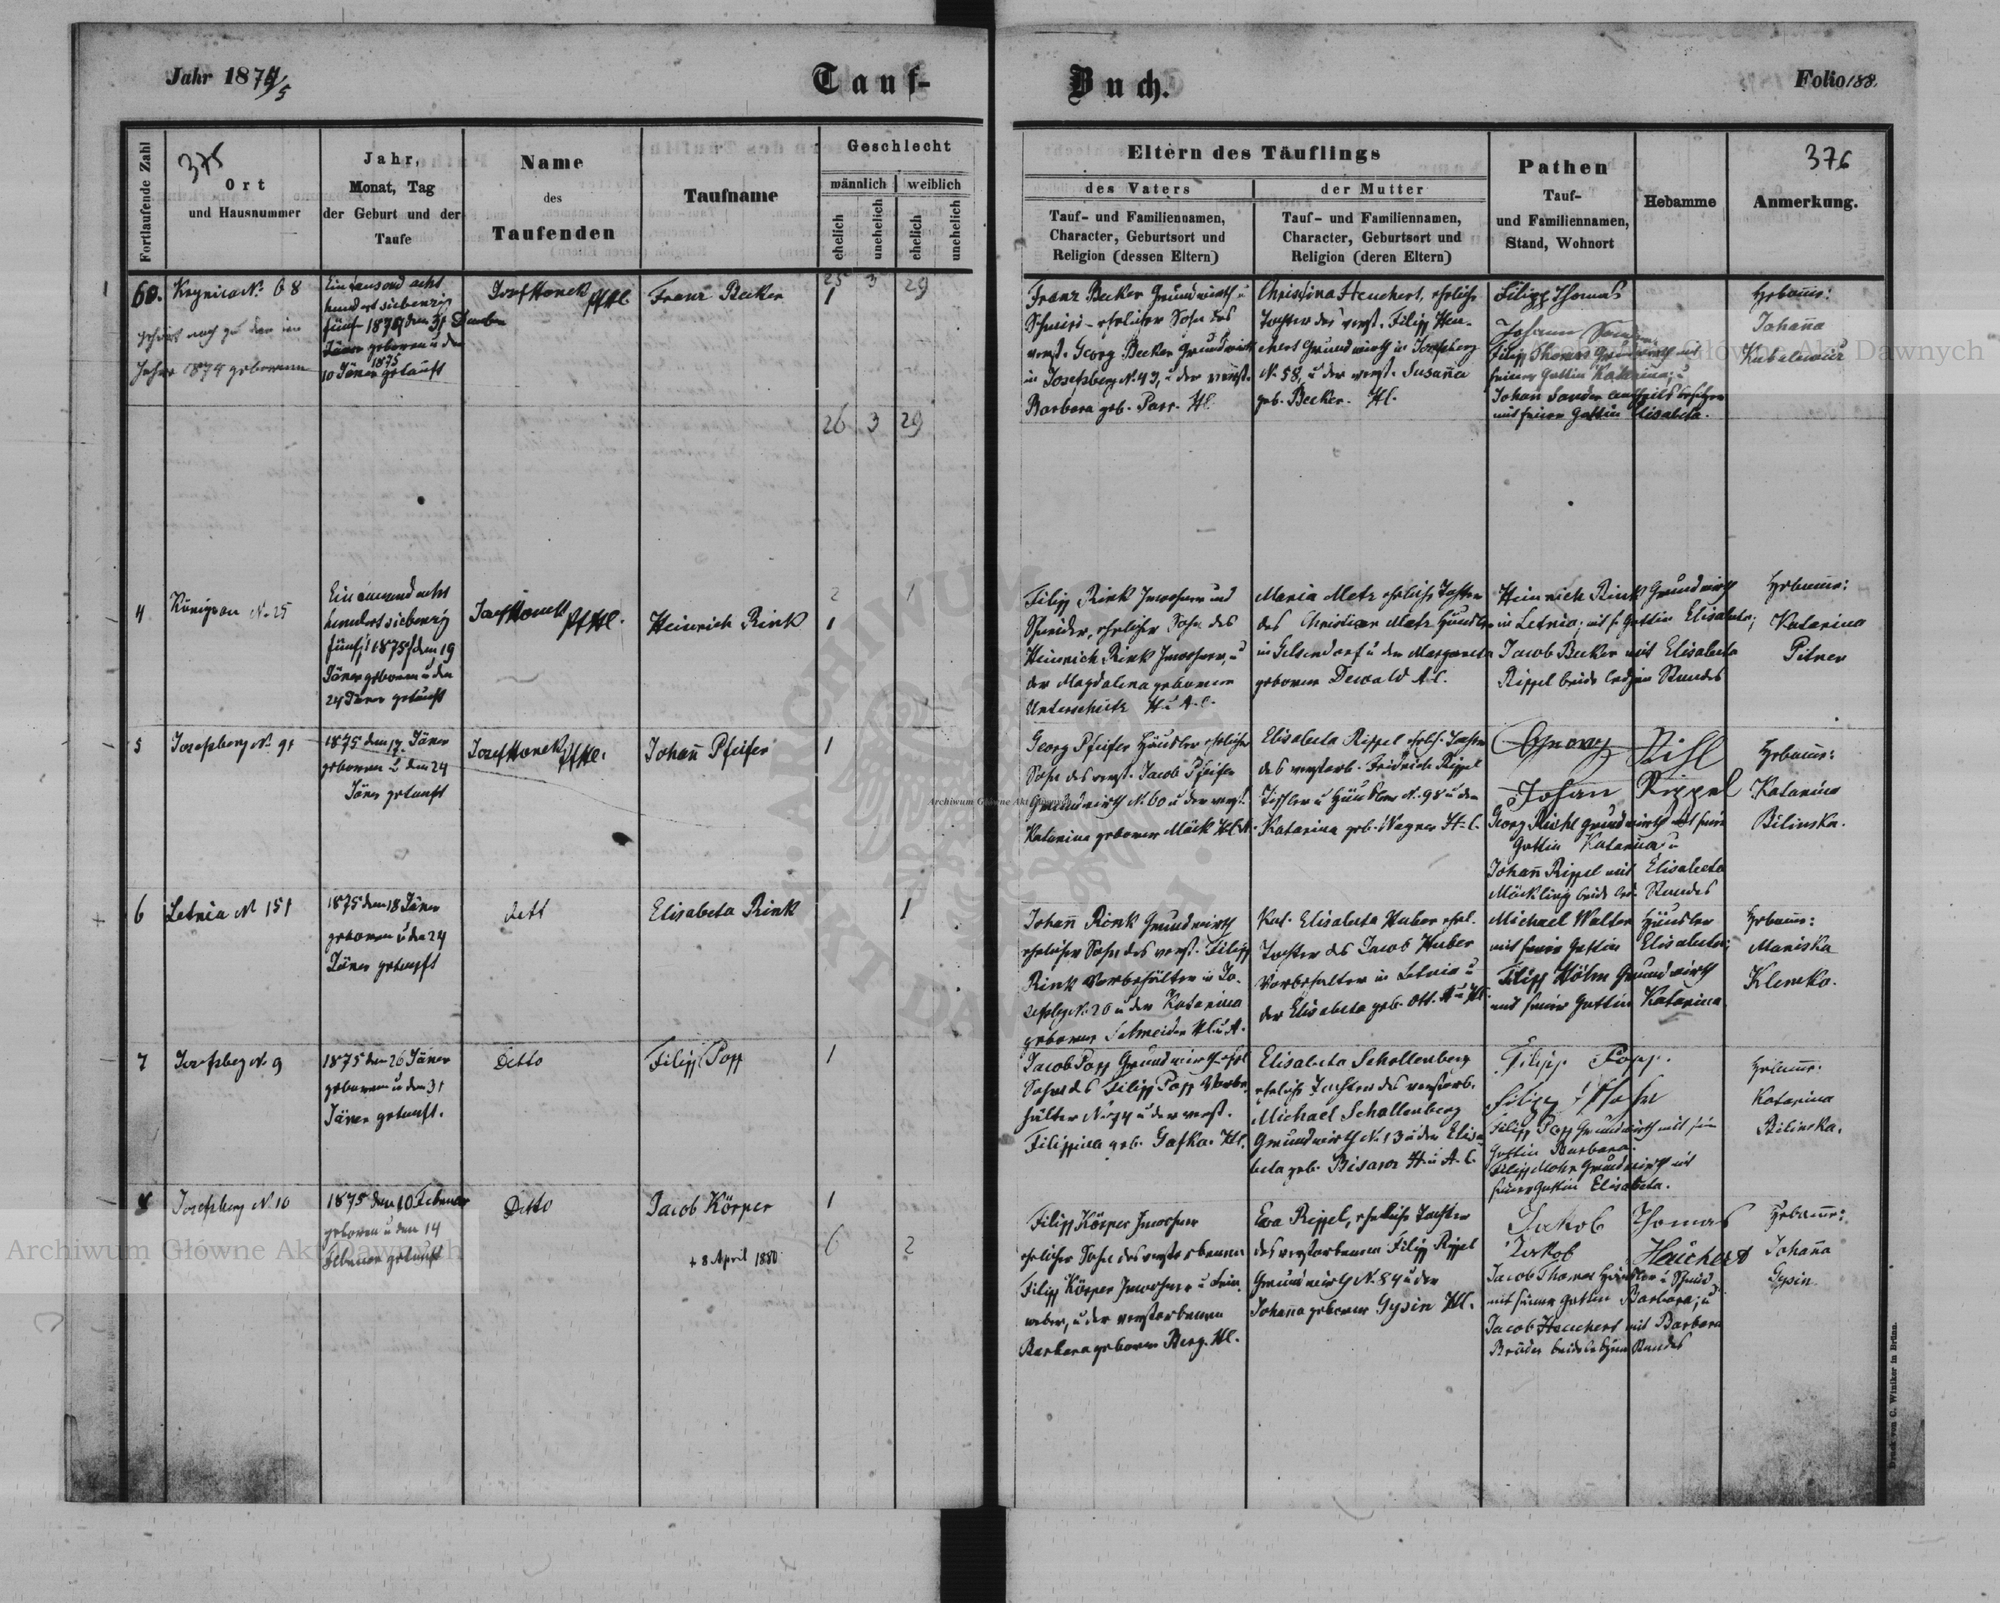 Jahr 1874/5
Tauf-
Buch.
Folio 188.
Fortlaufende Zahl
375
Ort
und Hausnummer
Jahr,
Monat, Tag
der Geburt und der
Taufe
Name
des
Taufenden
Taufname
Geschlecht
männlich
weiblich
ehelich
unehelich
ehelich
unehelich
Eltern des Täuflings
des Vaters
der Mutter
Tauf- und Familiennamen,
Character, Geburtsort und
Religion (dessen Eltern)
Tauf- und Familiennamen,
Character, Geburtsort und
Religion (deren Eltern)
Pathen
Tauf-
und Familiennamen,
Stand, Wohnort
Hebamme
376
Anmerkung.
60.
Krynica No. 68
gehört noch zu den im
Jahre 1874 geborenen
Ein tausend acht
hundert siebenzig
fünf 1875 den 31 Dezember
Jäner geboren u den
1875
10 Jäner getauft
Josef Honek
Franz Becker
25 3 29
1
26 3 29
Franz Becker Grundwirth u
Schmied - ehelicher Sohn des
verst. Georg Becker Grundwirth
in Josefsberg No. 43, u der verst.
Barbara geb. Parr. Hl.
Christina Heuchert, eheliche
Tochter des verst. Filipp Heu-
chert Grundwirth in Josefsberg
No. 58, u der verst. Susanna
geb. Becker. Hl.
Filipp Thomas
Johann Sander
Filipp Thomas Grundwirth mit
seiner Gattin Katarina; u
Johann Sander
mit seiner Gattin Elisabeta.
Hebamme:
Johanna
4
Königsau No. 25
Ein tausend acht
hundert siebenzig
fünf, 1875, den 19
Jäner geboren u den
24 Jäner getauft
Josef Honek
Heinrich Rink
2 1
1
Filipp Rink Inwohner und
Schneider, ehelicher Sohn des
Heinrich Rink Inwohner, u
der Magdalena geborene
Unterschütz H. u A. C.
Maria Metz eheliche Tochter
des Christian Metz Häusler
in Gelsendorf u der Margareta
geborene Dewald A. C.
Heinrich Rink Grundwirth
in Letnia, mit s. Gattin Elisabeta;
Jacob Becker mit Elisabeta
Rippel beide ledigen Standes
Hebamme:
Katarina
Pitner
5
Josefsberg No. 91
1875 den 17. Jäner
geboren u den 24
Jäner getauft
Josef Honek
Johann Pfeifer
1
Georg Pfeifer Häusler ehelicher
Sohn des verst. Jacob Pfeifer
Grundwirth No. 60 u der verst.
Katarina geborene Mäck
Elisabeta Rippel ehel. Tochter
des verstorb. Fridrich Rippel
Tischler u Häusler No. 98 u der
Katarina geb. Wagner H. C.
Johan Rippel
Georg Grundwirth mit seine
Gattin Katarina u
Johann Rippel mit Elisabeta
Mäckling beide led. Standes
Hebamme:
Katarina
Bilinska.
6
Letnia No 151
1875 den 18 Jäner
geboren u den 24
Jäner getauft
dett
Elisabeta Rink
1
Johann Rink Grundwirth
ehelicher Sohn des verst. Filipp
Rink Vorbehälter in Jo-
sefsbg No. 20 u der Katarina
geborene Schneider
Kat. Elisabeta Huber ehel.
Tochter des Jacob Huber
Vorbehalter in Letnia u
der Elisabeta geb. Ott.
Michael Walter Häusler
mit seine Gattin Elisabeta;
Filipp Höhn Grundwirth
mit seine Gattin Katarina
Hebamme:
Mariska
Klemko.
7
Josefsbeg No. 9
1875 den 26 Jäner
geboren u den 31
Jäner getauft.
Detto
Filipp Popp
1
Jacob Popp Grundwirth ehel
Sohn des Filipp Popp Vorbe-
hälter No. 74 u der verst.
Filippina geb. Gafka. Hl.
Elisabeta Schollenberg
eheliche Tochter des verstorb.
Michael Schallenberg
Grundwirth No. 13 u der Elisa-
beta geb. Bisanz H. u A. C.
Filipp Popp.
Filipp
Filipp Popp Grundwirth mit sein
Gattin Barbara.
Filipp Mohr Grundwirth mit
seiner Gattin Elisabeta.
Hebamme:
Katarina
Bilinska.
8
Josefsberg No. 10
1875 den 10 Februar
geboren u den 14
Februar getauft
Detto
Jacob Körper
+ 8 April 1880
1
6 2
Filipp Körper Inwohner
ehelicher Sohn des verstorbenen
Filipp Körper Inwohner u Lein-
weber, u der verstorbenen
Barbara geborene Berg. Hl.
Eva Rippel, eheliche Tochter
des verstorbenen Filipp Rippel
Grundwirth No. 84 u der
Johanna geborene Gysin Hl.
Jakob Thomas
Jakob Heuchert
Jacob Thomas Häusler u Schmid
mit seiner Gattin Barbara; u
Jacob Heuchert mit Barbara
Bräder beide ledigen Standes
Hebamme:
Johanna
Gysin
Druck von C. Winiker in Brünn.
Archiwum Główne Akt Dawnych
Archiwum Główne Akt Dawnych
Archiwum Główne Akt Dawnych